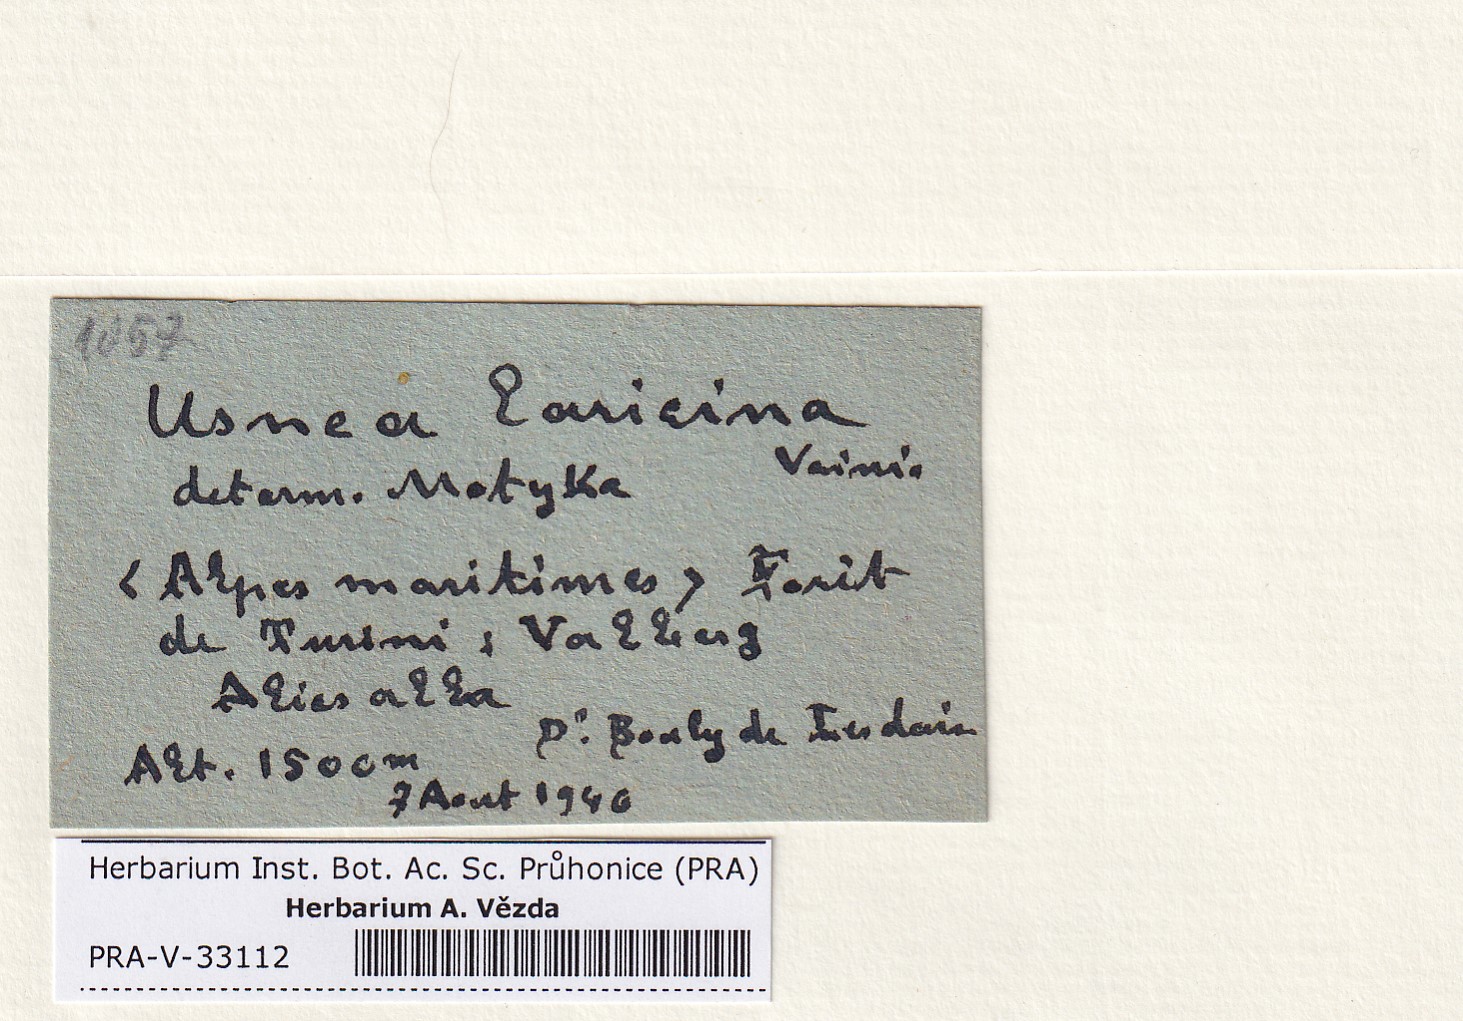 1057
Usnea laricina
Vaini.
determ. Motyka
(Alpes maritimes) Forêt
de Turini; Valberg
Abies alba
Dr. Bouly de Lesdain
Alt. 1500m
7 Aout 1946
Herbarium Inst. Bot. Ac. Sc. Průhonice (PRA)
Herbarium A. Vězda
PRA-V-33112